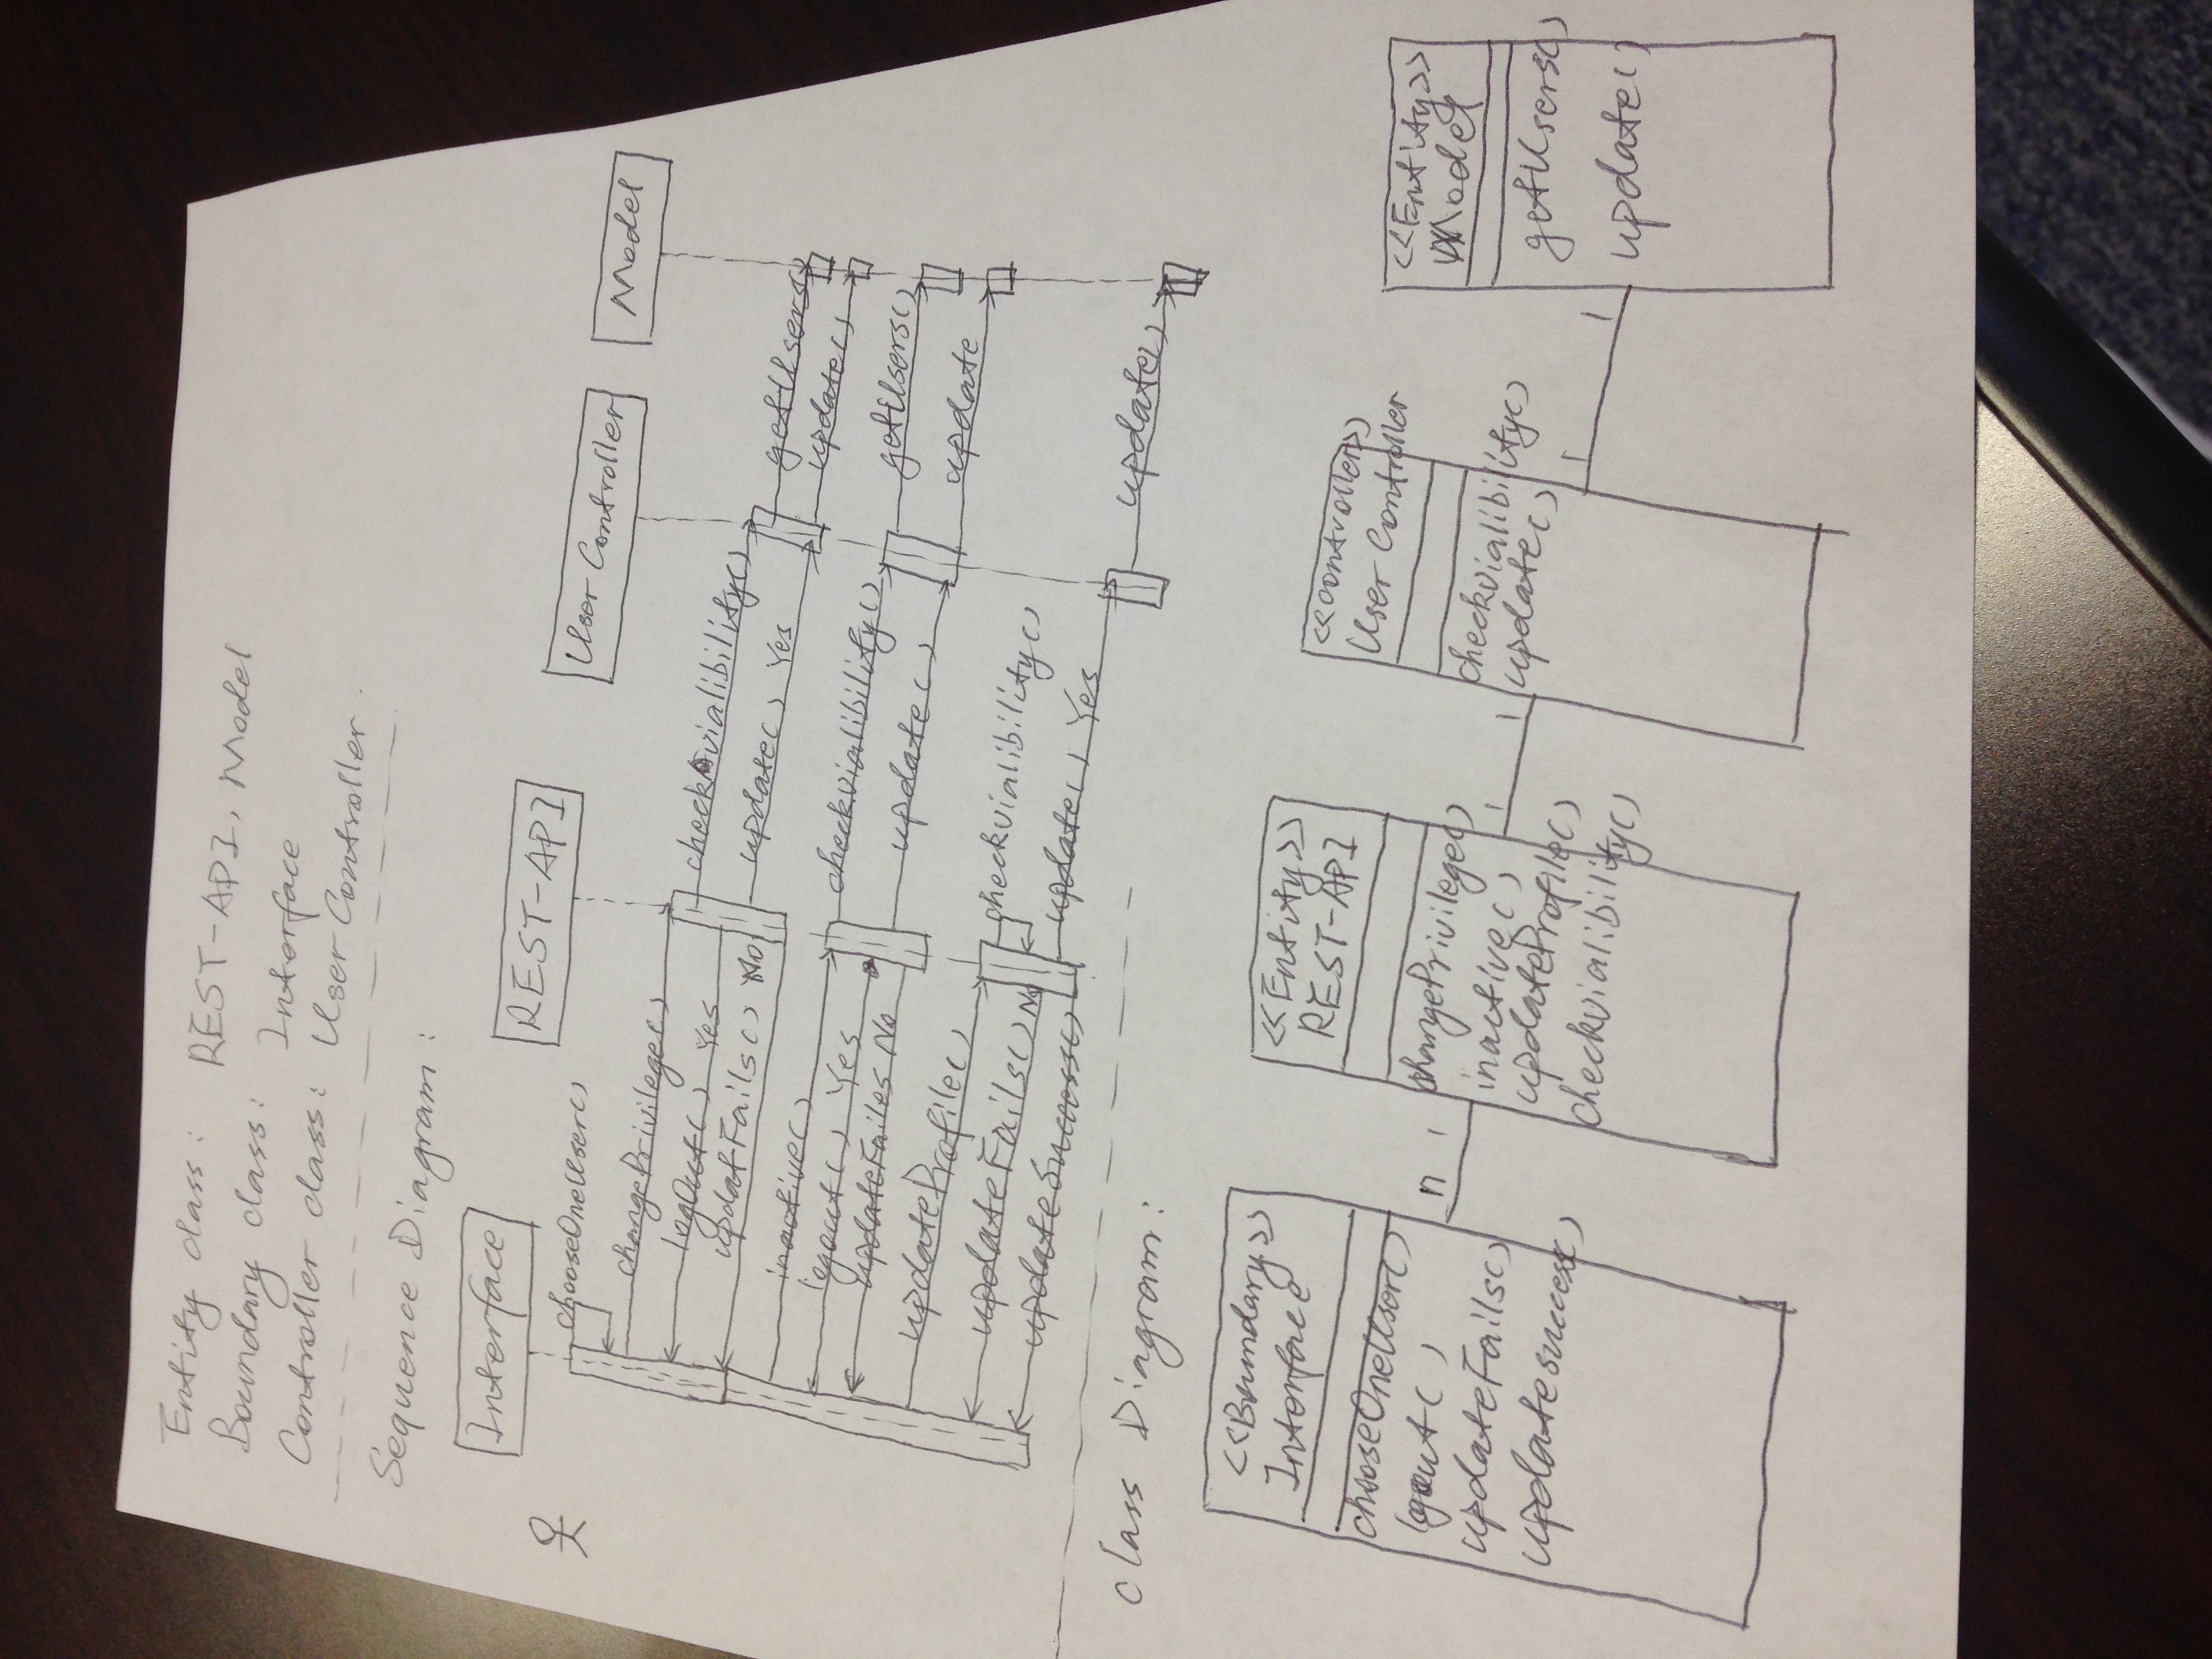 Entity class: REST-API, Model
Boundary class: Interface
Controller class: User Controller.
Sequence Diagram:
Interface
REST-API
User Controller
Model
chooseOneUser()
changePrivilege()
logOut() Yes
checkAvialibility()
updatFails() No
update() Yes
getUsers()
update()
inactive()
logout() Yes
checkvialibility()
updateFailes No
update()
getUsers()
update
updateProfile()
updateFails() No
checkvialibility()
updateSuccess()
update() Yes
update()
class Diagram:
<<Boundary>>
Interface
chooseOneUser()
logout()
updateFails()
updatesuccess()
n 1
<<Entity>>
REST-API
changePrivilege()
inactive()
updateProfile()
checkvialibility()
1 1
<<controller>>
User Controller
checkvialibility()
update()
1 1
<<Entity>>
Model
getUsers()
update()